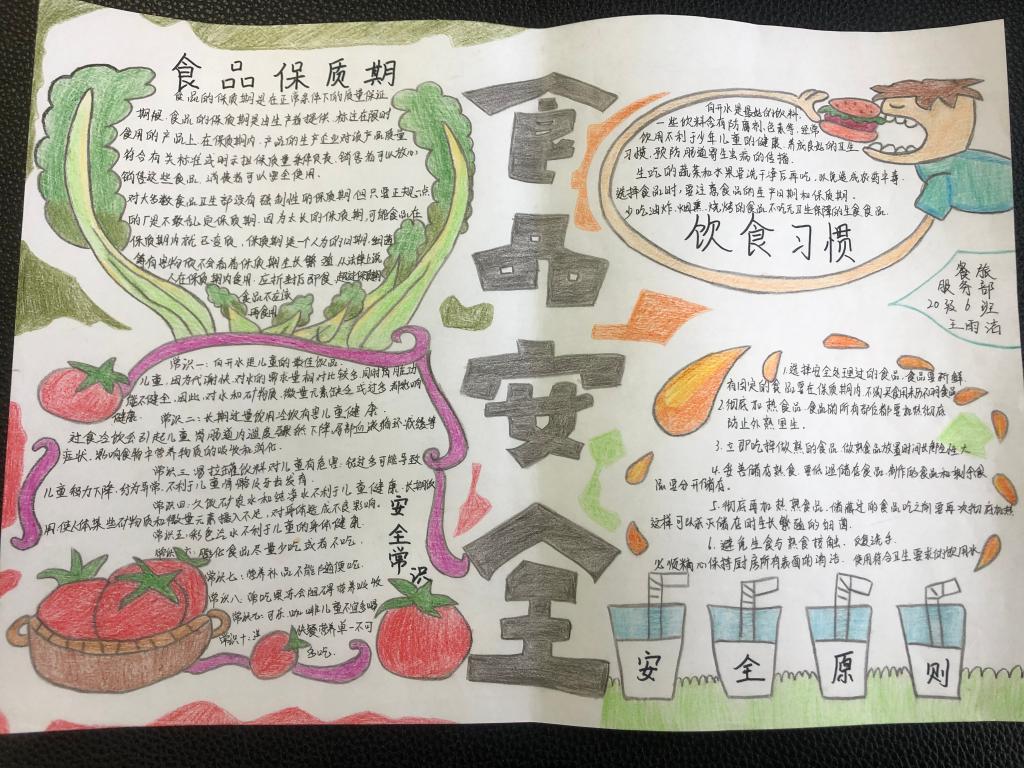 食品保质期
食品的保质期是在正常条件下的质量保证
期限.食品的保质期是由生产者提供,标注在限时
食用的产品上.在保质期内,产品的生产企业对该产品质量
符合有关标准或明示担保质量条件负责,销售者可以放心
销售这些食品,消费者可以安全使用.
对大多数食品卫生部没有强制性的保质期,但只要正规点
的厂是不敢乱定保质期.因为太长的保质期,可能食品在
保质期内就已变质,保质期是一个人为的日期,细菌
等有害物质不会看着保质期生长繁殖从法律上说
人在保质期内食用.应折封后即食.超过保质期
食品不应该
再食用
食品安全
向开水是最好的饮料.
一些饮料含有防腐剂,色素等,经常
饮用不利于少年儿童的健康.养成良好的卫生
习惯,预防肠道寄生虫病的传播.
生吃的蔬菜和水果要洗干净后再吃,以免造成农药中毒.
选择食品时,要注意食品的生产日期和保质期.
少吃油炸.烟熏.烧烤的食品不吃无卫生保障的生食食品.
饮食习惯
餐旅
服务部
20级6班
王雨洁
常识一:白开水是儿童的最佳饮品
儿童,因为代谢快.对水的需求量相对比较多,同时肾脏功
能不健全,因此,对水和矿物质,微量元素缺乏或过多都影响
健康.
常识二:长期过量饮用冷饮有害儿童健康.
过食冷饮会引起儿童胃肠道内温度骤然下降,局部血液循环减缓等
症状,影响食物中营养物质的吸收和消化.
常识三:易拉罐饮料对儿童有危害.铝过多可能导致
儿童智力下降,行为异常,不利于儿童骨骼及牙齿发育.
常识四:久饮矿泉水和纯净水不利于儿童健康.长期饮
用使人体某些矿物质和微量元素摄入不足,对身体造成不良影响.
常识五:彩色汽水不利于儿童的身体健康.
常识六:膨化食品尽量少吃或者不吃.
常识七:营养补品不能随便吃.
常识八:常吃果冻会阻碍营养吸收
常识九:可乐.咖啡儿童不宜多喝
常识十:洋快餐营养单一不可
多吃.
安全常识
1.选择安全处理过的食品.食品要新鲜
有固定的食品要在保质期内.不购买食用来历不明食品
2.彻底加热食品.食品的所有部位都要加热彻底
防止外熟里生.
3.立即吃掉做熟的食品.做熟食品放置时间长危险性大
4.妥善储存熟食.要低温储存食品.制作的食品和剩余食
品要分开储存.
5.彻底再加热熟食品.储藏过的食品吃之前要再次彻底加热
这样可以杀灭储存时生长繁殖的细菌.
6.避免生食与熟食接触.反复洗手.
必须精心保持厨房所有表面的清洁.使用符合卫生要求的饮用水
安全原则